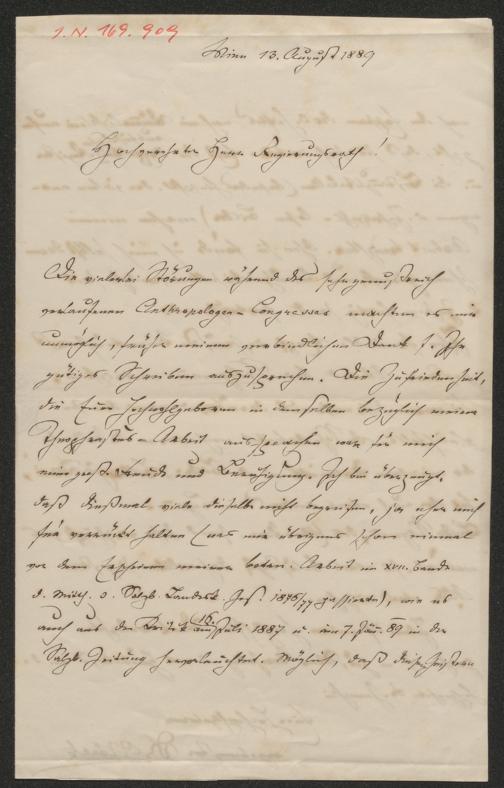 I. N. 169.909
Wien 13. August 1889
Hochverehrter Herr Regierungsrath!
Die vielerlei Störungen während des sehr genußreich
verlaufenen Anthropologen-Congresses machten es mir
unmöglich, früher meinen verbindlichen Dank f. Ihr
gütiges Schreiben auszusprechen. Die Zufriedenheit,
die Euer Hochwohlgeboren in demselben bezüglich meiner
Theophrastus-Arbeit aussprachen war für mich
eine große Freude und Beruhigung. Ich bin überzeugt,
daß dießmal viele dieselbe nicht begreifen, ja eher mich
für verrückt halten (was mir übrigens schon einmal
vor dem Erscheinen meiner botan. Arbeit im XVII. Bande
d. Mitth. d. Salzb. Landesk. Ges. 1876/77 passierte), wie es
auch aus der Kritik 16. Juli 1887 u. im 7. Jän. 89 in der
Salzb. Zeitung hervorleuchtet. Möglich, daß diese Herren